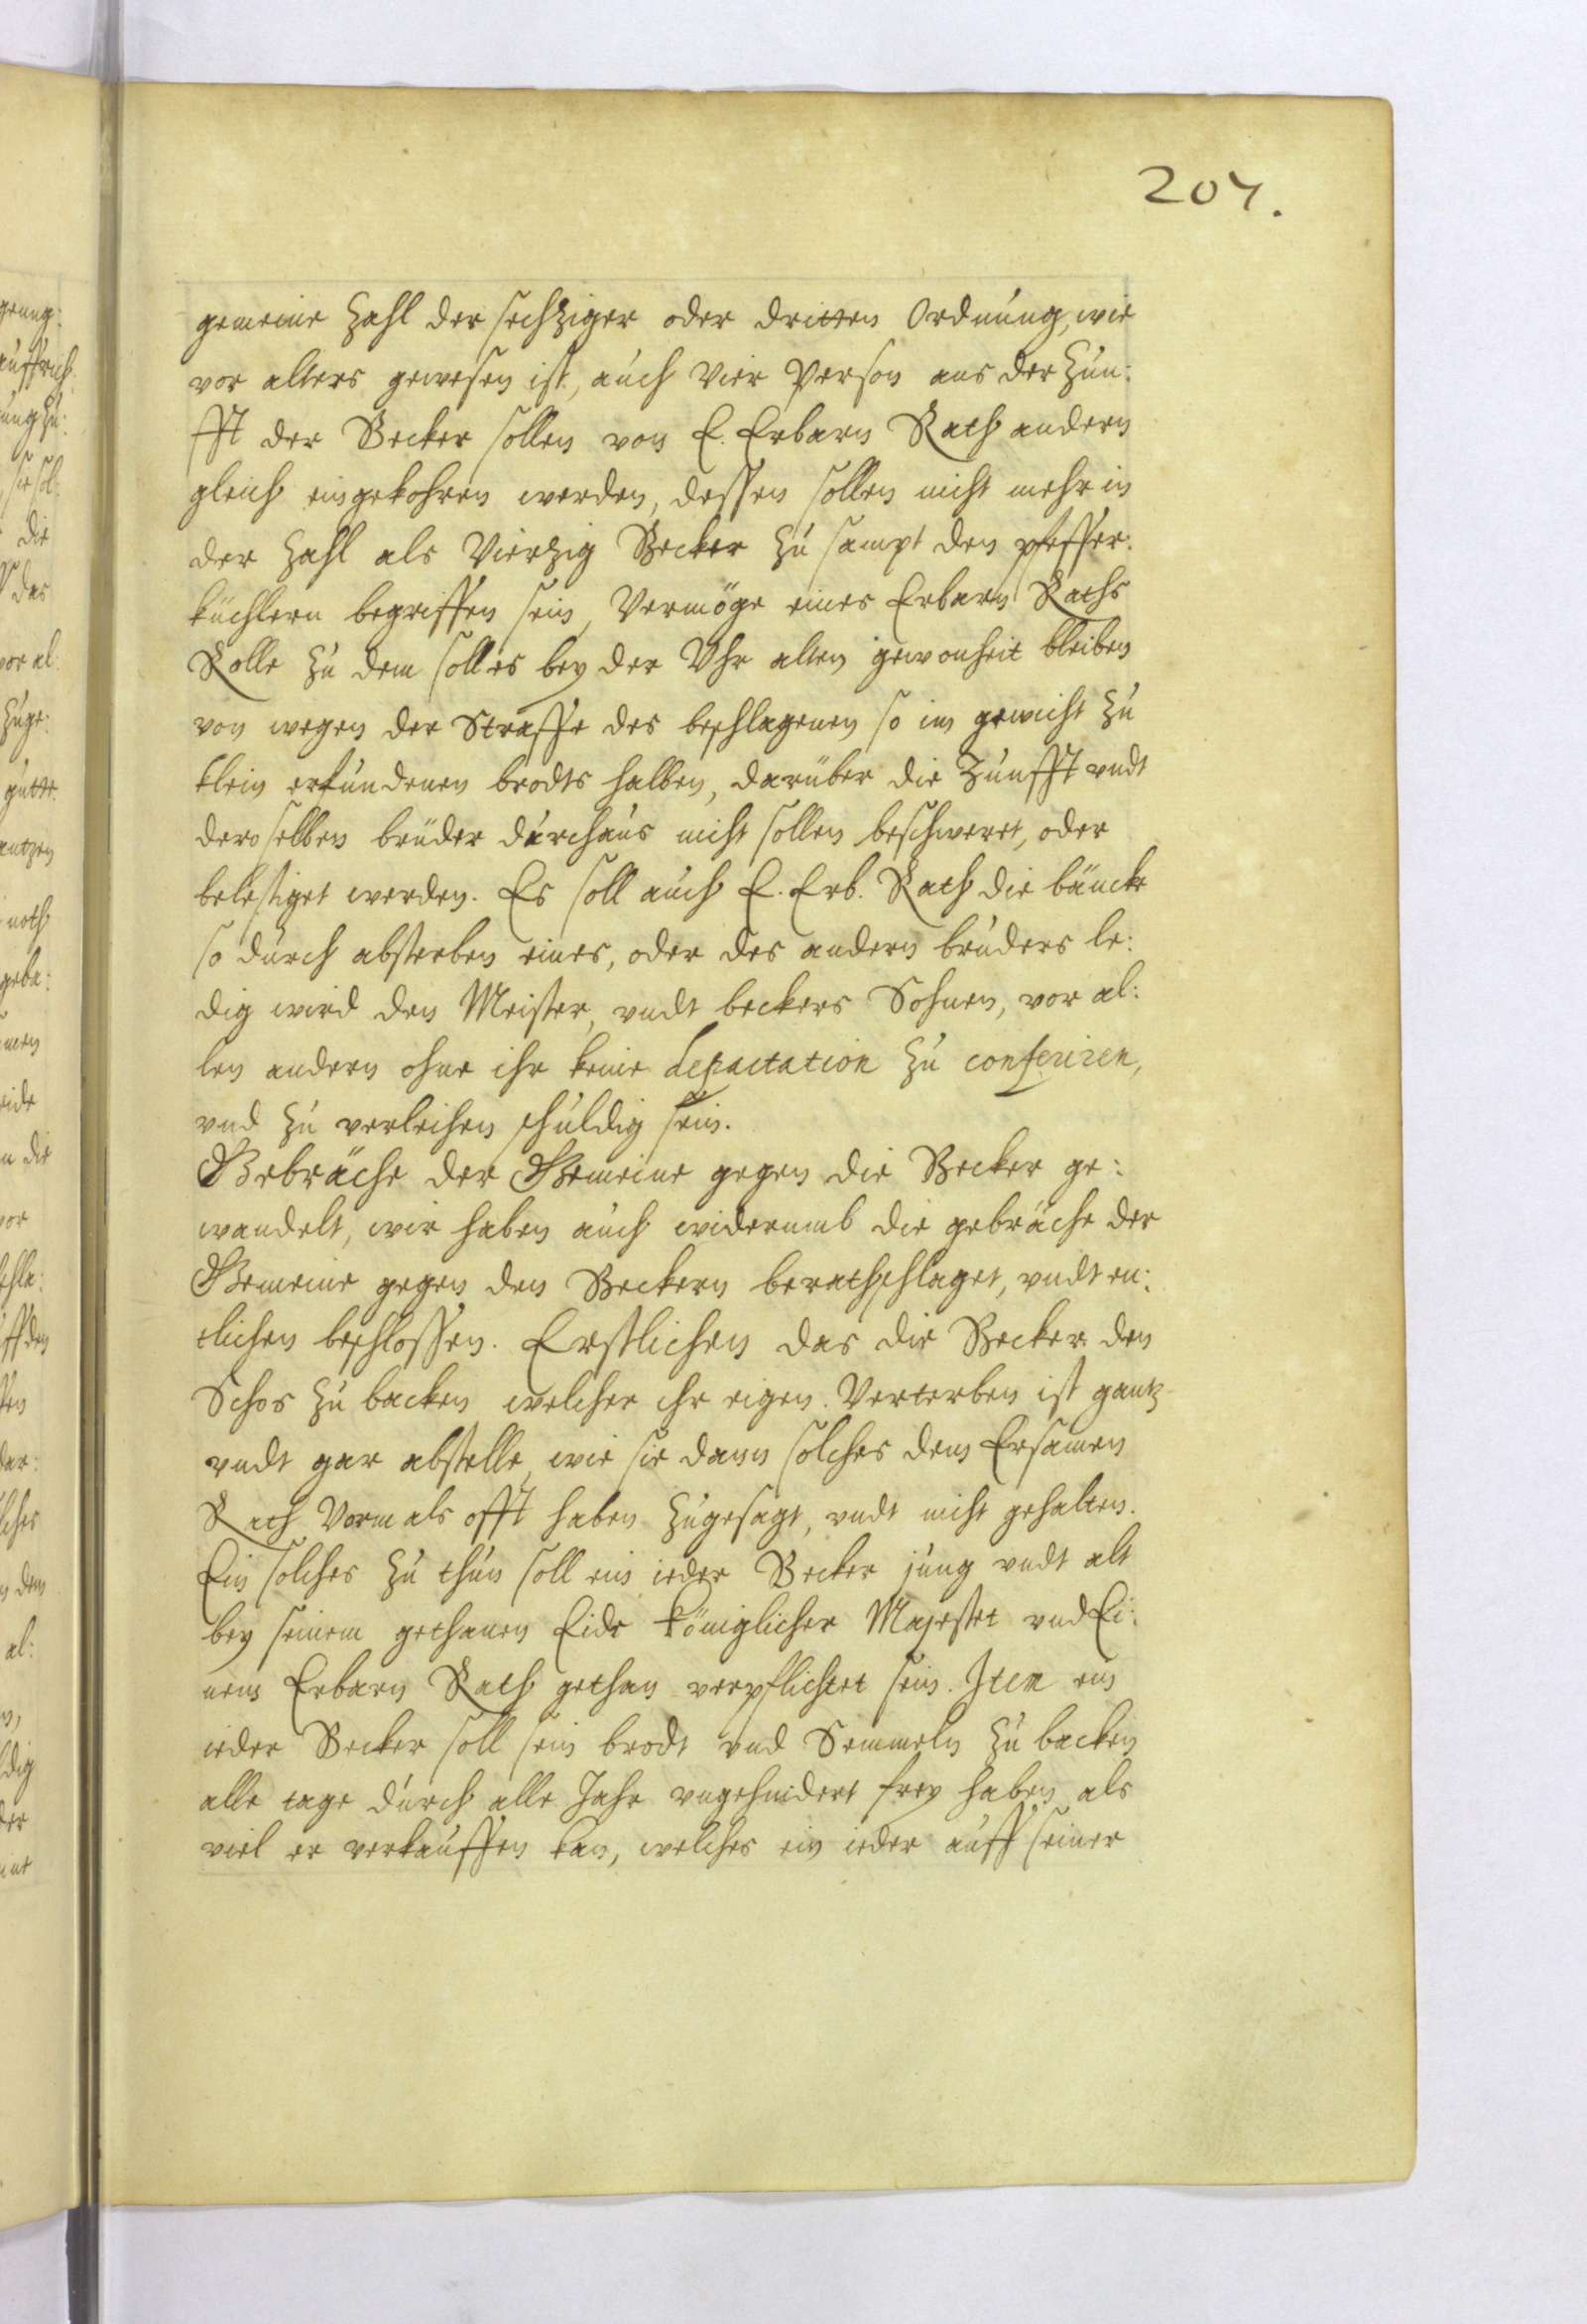 207.
gemeine Zahl der sechziger oder dritten Ordnung, wie
vor alters gewesen ist, auch Vier Person aus der Zun:
fft der Becker sollen von E. Erbarn Rath andern
gleich eingekohren werden, dessen sollen nicht mehr in
der Zahl als Vierzig Becker zu sampt den pfeffer:
küchlern begriffen sein, Vermöge eines Erbarn Raths
Rolle zu dem soll es bey der Vhr alten gewonheit bleiben
von wegen der Straffe des beschlagenen so im gewicht zu
klein erfundenen brodts halben, darüber die Zunfft vndt
deroselben brüder durchaus nicht sollen beschweret, oder
belestiget werden. Es soll auch E. Erb. Rath die bäncke
so durch absterben eines, oder des andern bruders le:
dig wird den Meister, vndt beckers Sohnen, vor al:
len andern ohne ihr keine depactation zu conferiren,
vnd zu verleihen schuldig sein.
Gebräche der Gemeine gegen die Becker ge:
wandelt, wir haben auch widerumb die gebräche der
Gemeine gegen den Beckern berathschlaget, vndt en:
tlichen beschlossen. Erstlichen das die Becker den
Schos zu backen welcher ihr eigen Verterben ist gantz
vndt gar abstelle, wie sie dann solches dem Ersamen
Rath Vormals offt haben zugesagt, vndt nicht gehalten.
Ein solches zu thun soll ein ieder Becker jung vndt alt
bey seinem gethanen Eide Königlicher Majestet vnd Ei:
nem Erbarn Rath gethan verpflichtet sein. Item ein
ieder Becker soll sein brodt vnd Semmeln zu backen
alle tage durch alle Jahr vngehindert frey haben als
viel er verkauffen kan, welches ein ieder auff seiner